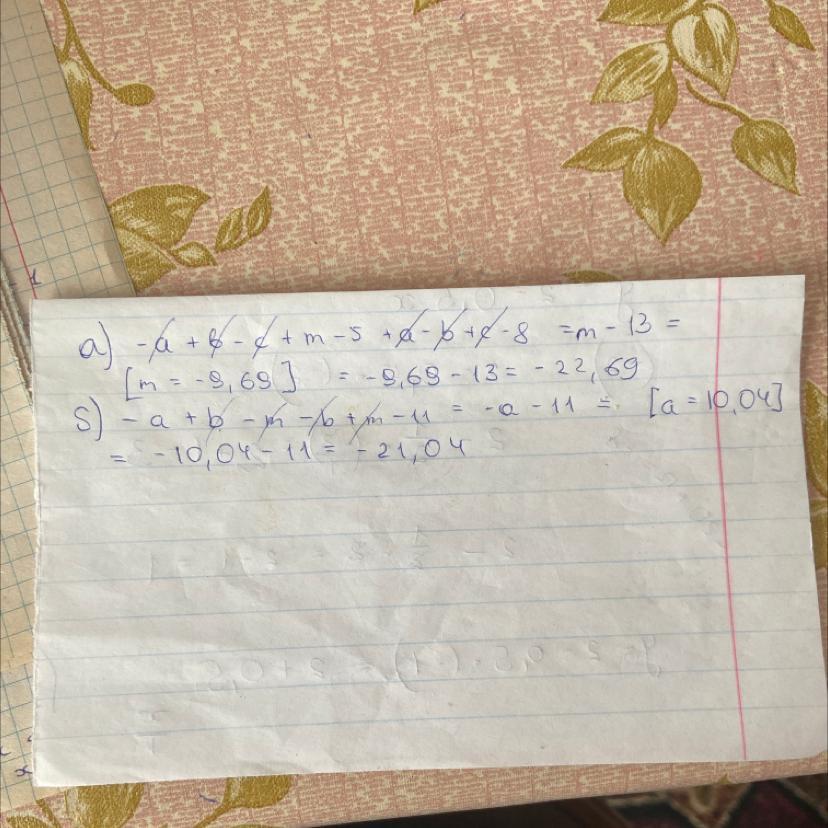 a) -a + b - c + m - 5 + a - b + c - 8 = m - 13 =
[m = -9,69] = -9,69 - 13 = -22,69
б) -a + b - m - b + m - 11 = -a - 11 = [a = 10,04]
= -10,04 - 11 = -21,04